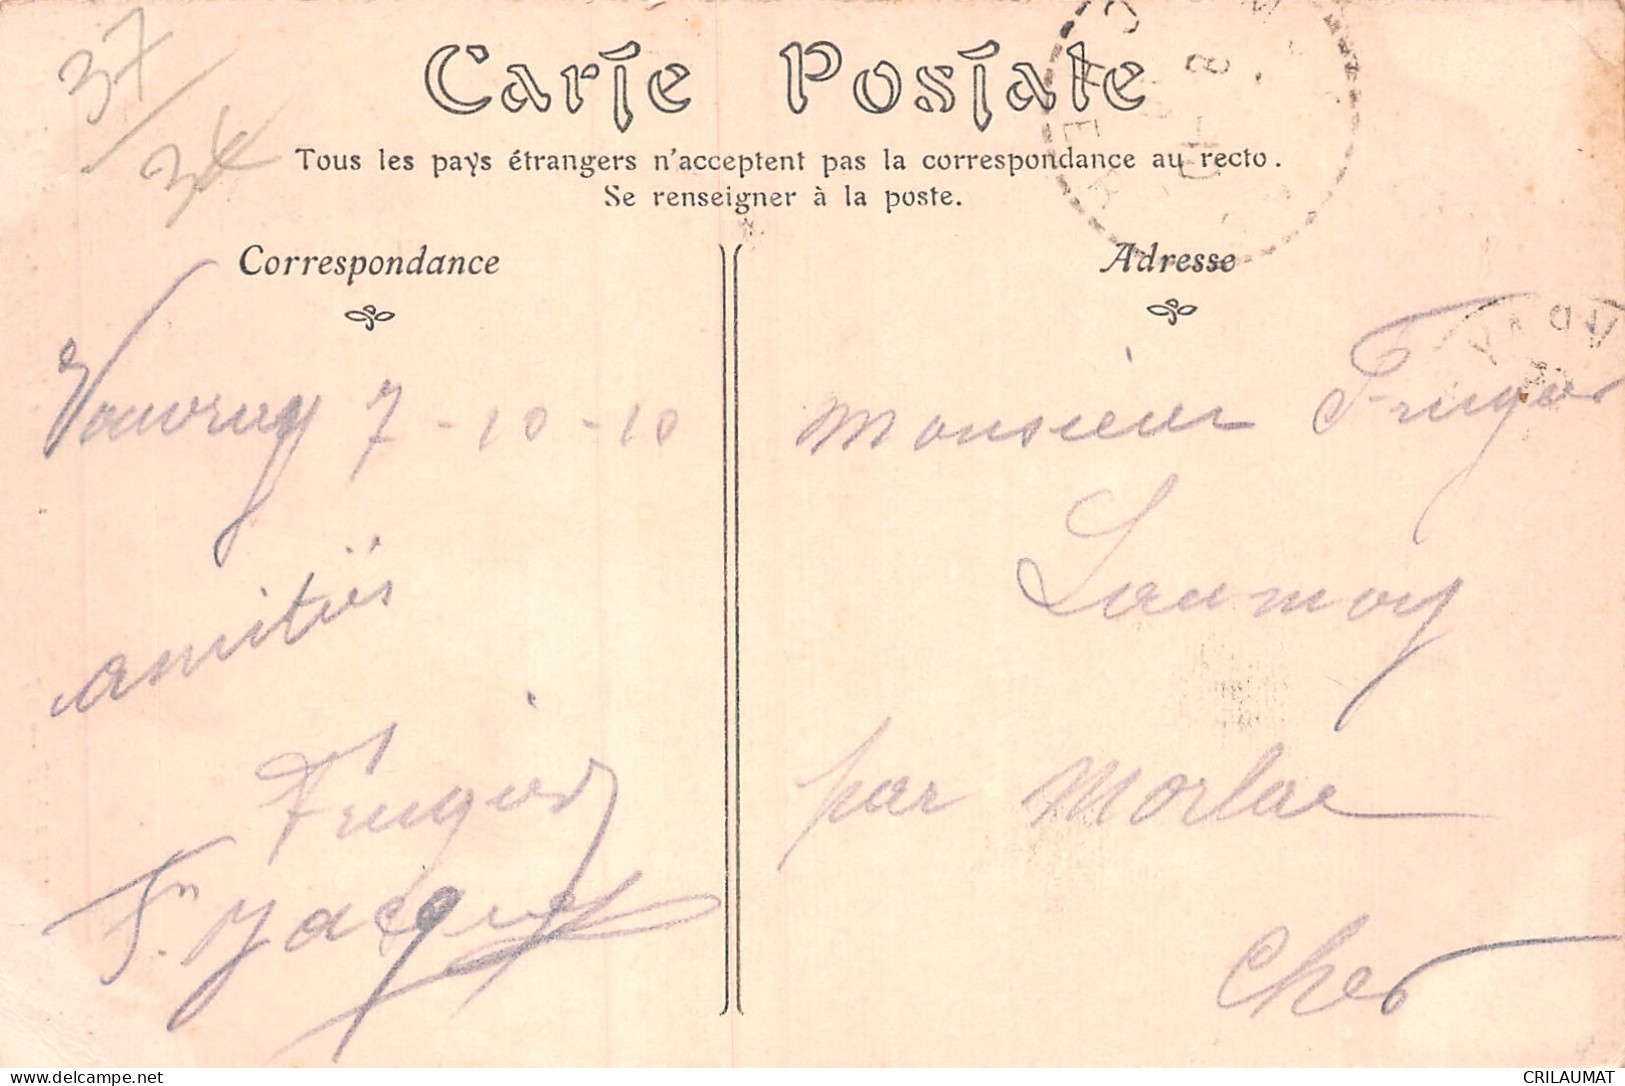 37/34
Carte Postale
Tous les pays étrangers n'acceptent pas la correspondance au recto.
Se renseigner à la poste.
Correspondance
Vouvray 7-10-10
amitiés
Frugier
Jacques
Adresse
Monsieur Frugier
Laumoy
par Morlac
Cher
delcampe.net
CRILAUMAT